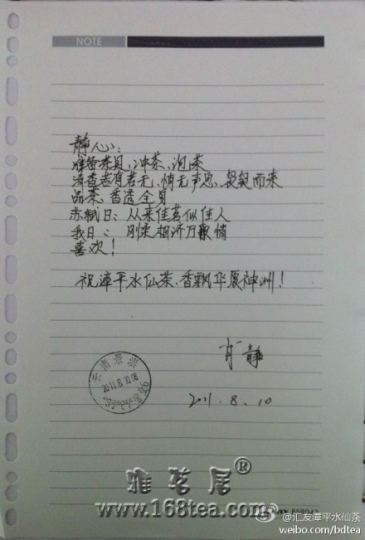 NOTE
静心:
准备茶具,冲茶,泡茶
清香若有若无,悄无声息,袅袅而来
品茶,香透全身
苏轼曰:从来佳茗似佳人
我曰:刚柔相济万般情
喜欢!
祝漳平水仙茶,香飘华夏神洲!
肖静
2011.8.10
雅茗居®
www.168tea.com
@汇友漳平水仙茶
weibo.com/bdtea